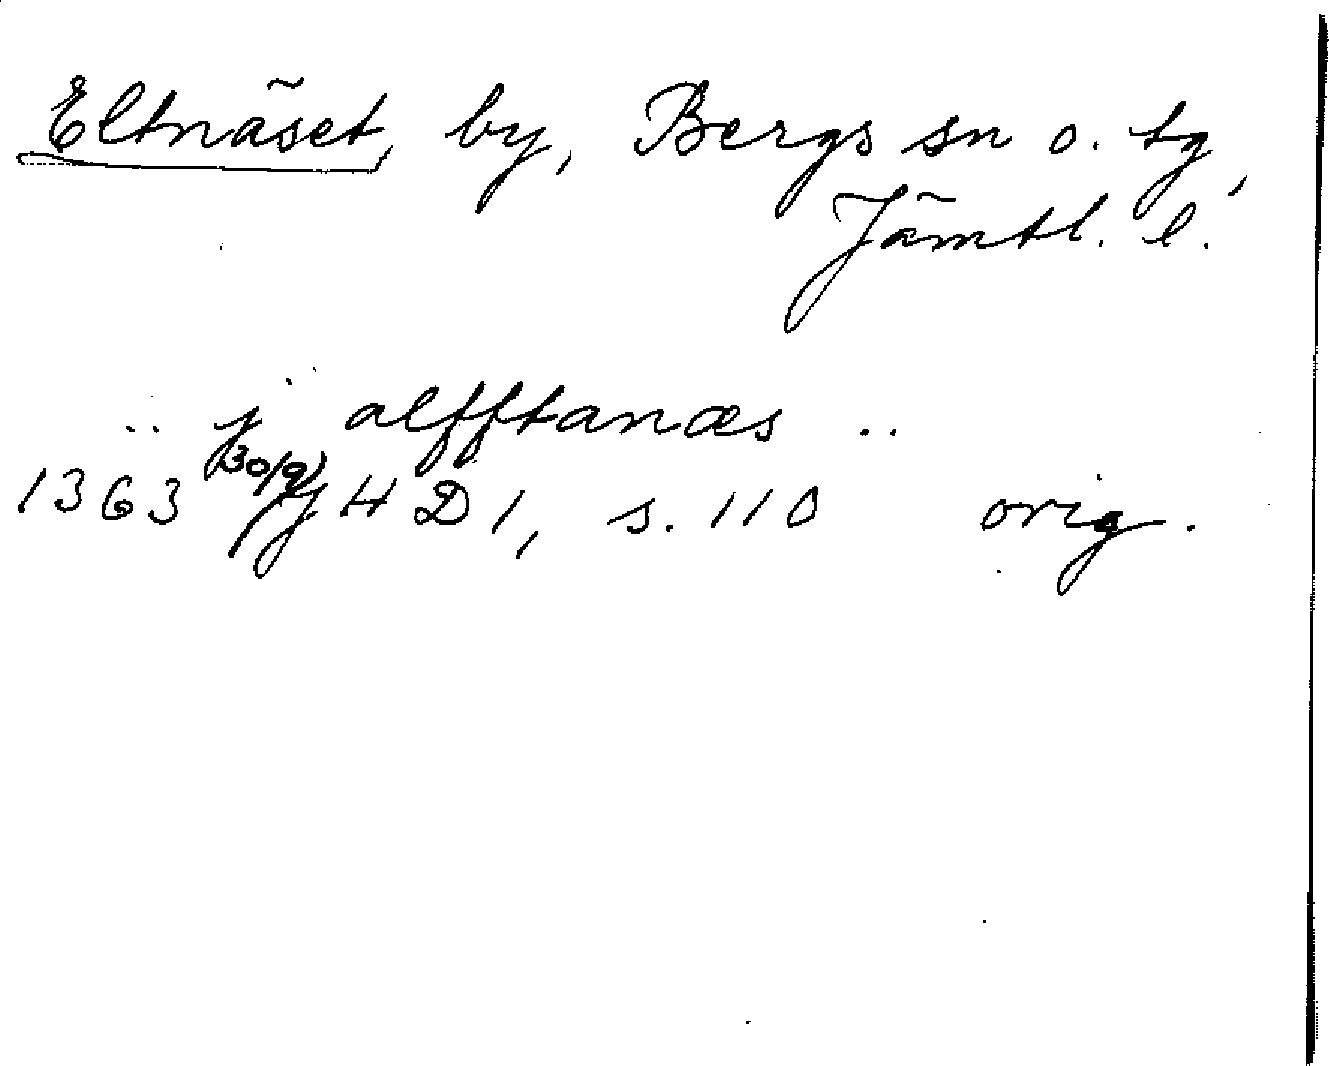 Eltnäset, by, Bergs sn o. tg,
Jämtl. l.
.. j alfftanæs ..
1363 30/9 JHD 1, s. 110 orig.